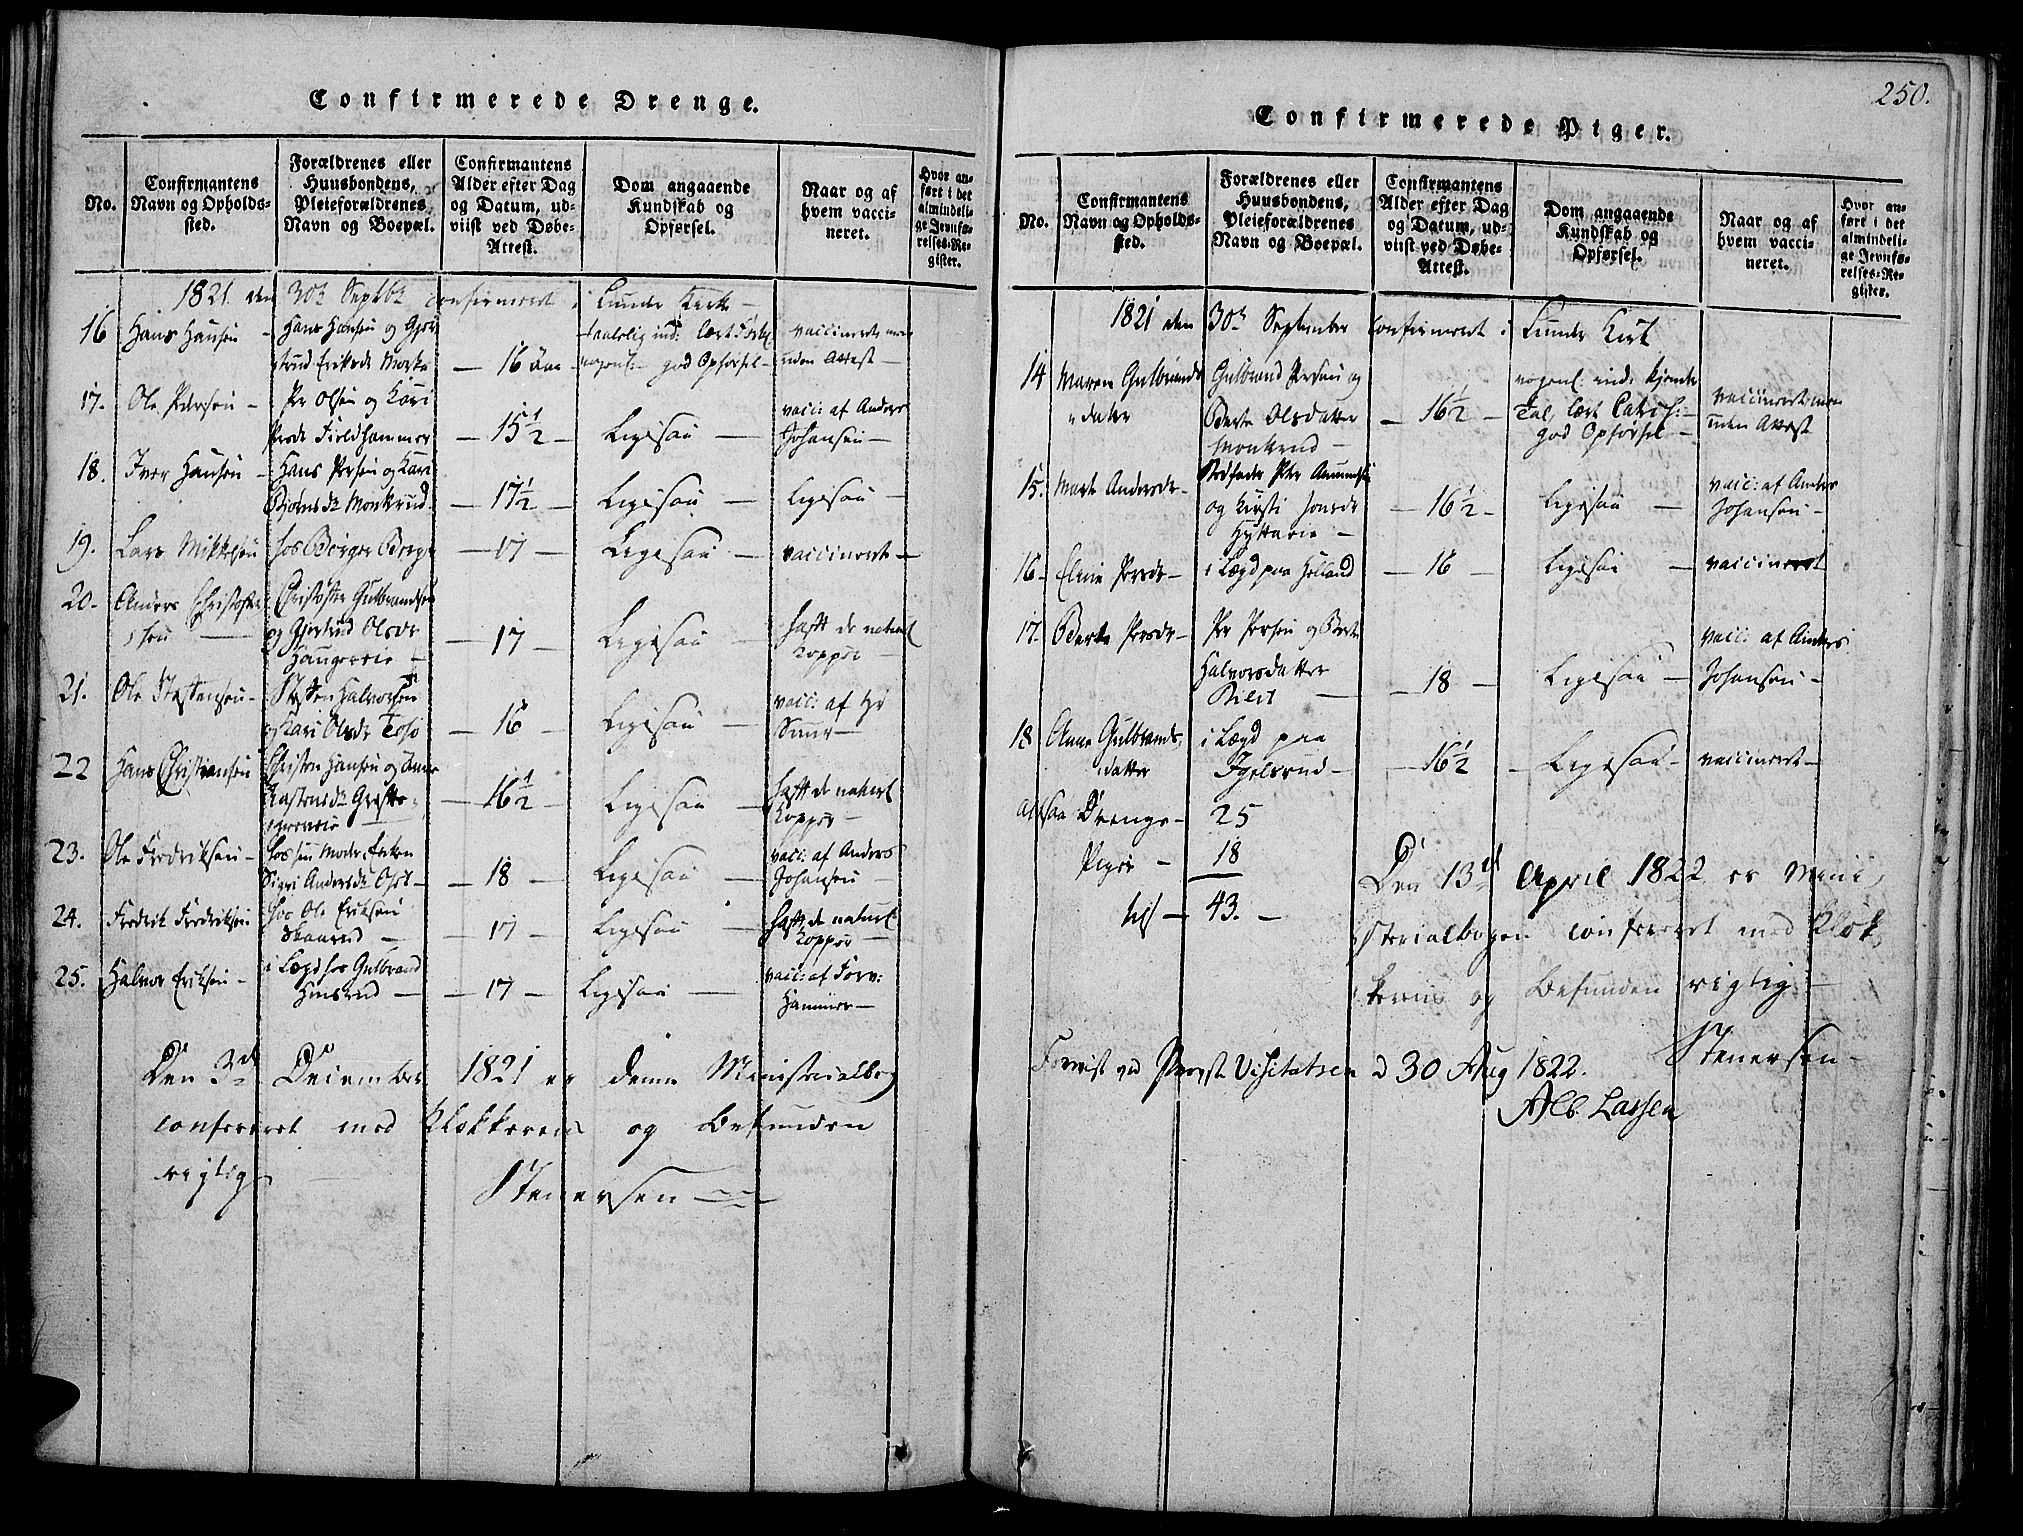 Confirmerede Drenge.
No.
Confirmantens Navn og Opholds-
sted.
Forældrenes eller
Huusbondens,
Pleieforældrenes
Navn og Boepæl.
Confirmantens
Alder efter Dag
og Datum, ud-
viist ved Døbe-
Attest.
Dom angaaende
Kundskab og
Opførsel.
Naar og af
hvem vacci-
neret.
Hvor an-
ført i det
almindeli-
ge Jevnfø-
relses-Re-
gister.
1821 den 30te Septbr confirmeret i Lunde Kirke
16 Hans Hansen - Hans Hansen og Gjer
trud Eriksdr - 16 Aar - god Opførsel - vaccineret men
uden Attest -
17. Ole Pedersen - Per Olsen og Kari
Persdr Fieldhammer - 15½ - Ligesaa - vacc: af Anders
Johansen -
18. Iver Hansen - Hans Persen og Kari
Biørnsdr Monkrud - 17½ - Ligesaa - Ligesaa -
19. Lars Mikkelsen hos Børger Berge - 17 - Ligesaa - vaccineret -
20. Anders Christofer
sen - Christofer Gulbrandsen
og Gjertrud Olsdr
Haugereie - 17 - Ligesaa - haft de naturl
Kopper -
21. Ole Steffensen - Steffen Halvorsen
og Kari Olsdr - 16 - Ligesaa - vacc: af Hr
22 Hans Christiansen Christen Hansen og Anne
- 16½ - Ligesaa - haft de naturl
Kopper -
23. Ole Fredriksen - hos sin
Sigri Andersdr - 18 - Ligesaa - vacc: af Anders
Johansen -
24. Fredrik Fredriksen hos Ole Eriksen
Skaarud - 17 - Ligesaa - haft de naturl
Kopper -
25. Halvor Eriksen - i Lægd hos Gulbrand
- 17 - Ligesaa - vacc: af Forv:
Hammer -
Den 3die December 1821 er denne Ministerialbog
confereret med Klokkerens og befunden
rigtig
Stenersen
250.
Confirmerede Piger.
No.
Confirmantens
Navn og Opholds-
sted.
Forældrenes eller
Huusbondens,
Pleieforældrenes
Navn og Boepæl.
Confirmantens
Alder efter Dag
og Datum, ud-
viist ved Døbe-
Attest.
Dom angaaende
Kundskab og
Opførsel.
Naar og af
hvem vacci-
neret.
Hvor an-
ført i det
almindeli-
ge Jevnfø-
relses-Re-
gister.
1821 den 30te September confirmeret i Lunde Kirke
14 Maren Gulbrands
datter Gulbrand Persen og
Berte Olsdatter
Monkrud - 16½ - god Opførsel - vaccineret men
uden Attest
15. Marte Andersdr - Stedfader Peder Amundsen
og Kirsti Jonsdr
- 16½ - Ligesaa - vacc: af Anders
Johansen -
16 - Eline Persdr - i Lægd paa Helland - 16 - Ligesaa - vaccineret
17. Berte Persdr - Per Persen og Berte
Halvorsdatter
- 18 - Ligesaa - vacc: af Anders
Johansen -
18 Anne Gulbrands
datter i Lægd paa
Igelsrud - 16½ - Ligesaa - vaccineret -
altsaa Drenge - 25
Piger - 18
43. -
Den 13de April 1822 er Mini
sterialbogen confereret med Klok
kerens og befunden rigtig -
Stenersen -
Foreviist ved Provste Visitatsen d 30 Aug 1822.
Alb. Lassen